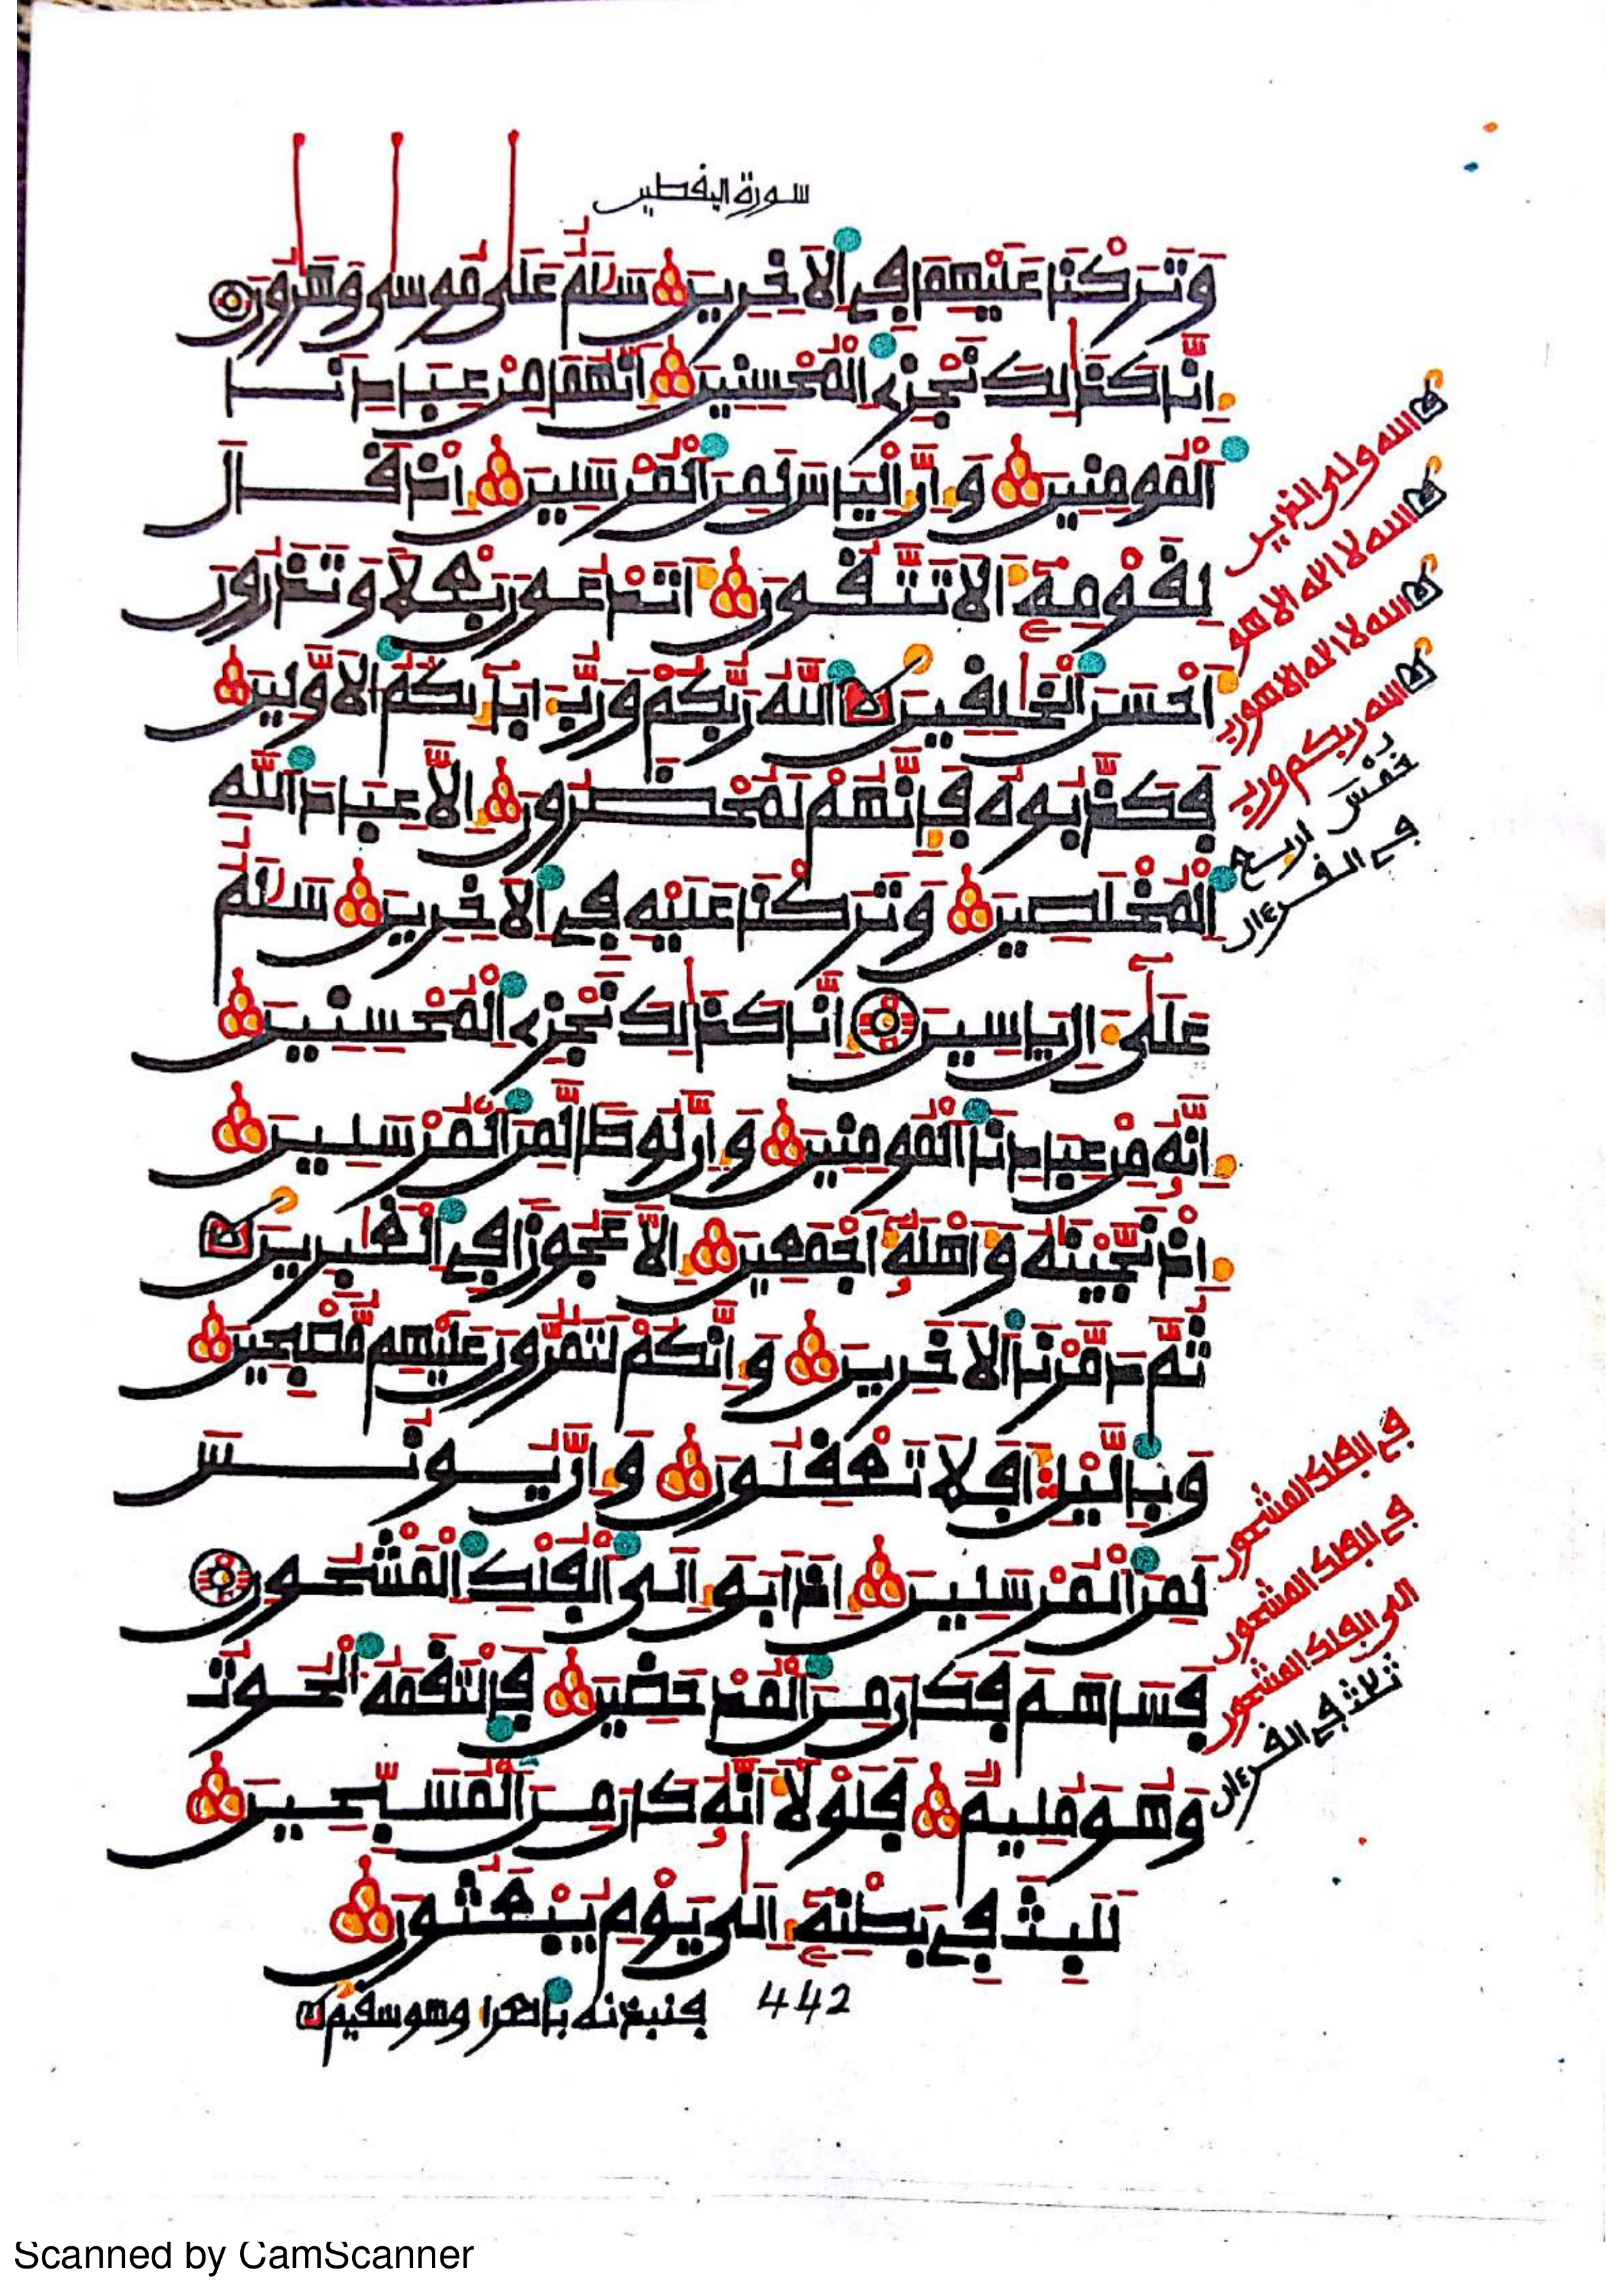 سورة اليفطين
وَتَرَكْنَا عَلَيْهِمَا فِي الَاخِرِينَ سَلَٰمٌ عَلَىٰ مُوسَىٰ وَهَٰرُونَ
إِنَّا كَذَٰلِكَ نَجْزِي الْمُحْسِنِينَ إِنَّهُمَا مِنْ عِبَادِنَا
الْمُومِنِينَ وَإِنَّ إِلْيَاسَ لَمِنَ الْمُرْسَلِينَ إِذْ قَالَ
لِقَوْمِهِ أَلَا تَتَّقُونَ أَتَدْعُونَ بَعْلًا وَتَذَرُونَ
أَحْسَنَ الْخَٰلِقِينَ اللَّهُ رَبُّكُمْ وَرَبُّ ءَابَآئِكُمُ الَاوَّلِينَ
فَكَذَّبُوهُ فَإِنَّهُمْ لَمُحْضَرُونَ إِلَّا عِبَادَ اللَّهِ
الْمُخْلَصِينَ وَتَرَكْنَا عَلَيْهِ فِي الَاخِرِينَ سَلَٰمٌ
عَلَىٰ إِلْ يَاسِينَ إِنَّا كَذَٰلِكَ نَجْزِي الْمُحْسِنِينَ
إِنَّهُ مِنْ عِبَادِنَا الْمُومِنِينَ وَإِنَّ لُوطًا لَّمِنَ الْمُرْسَلِينَ
إِذْ نَجَّيْنَٰهُ وَأَهْلَهُ أَجْمَعِينَ إِلَّا عَجُوزًا فِي الْغَٰبِرِينَ
ثُمَّ دَمَّرْنَا الَاخَرِينَ وَإِنَّكُمْ لَتَمُرُّونَ عَلَيْهِم مُّصْبِحِينَ
وَبِالَّيْلِ أَفَلَا تَعْقِلُونَ وَإِنَّ يُونُسَ
لَمِنَ الْمُرْسَلِينَ إِذَ ابَقَ إِلَى الْفُلْكِ الْمَشْحُونِ
فَسَاهَمَ فَكَانَ مِنَ الْمُدْحَضِينَ فَالْتَقَمَهُ الْحُوتُ
وَهُوَ مُلِيمٌ فَلَوْلَا أَنَّهُ كَانَ مِنَ الْمُسَبِّحِينَ
لَلَبِثَ فِي بَطْنِهِ إِلَىٰ يَوْمِ يُبْعَثُونَ
فنبذنه بالعرا وهو سقيم
442
الله ولي الذين
الله لا اله الا هو
الله لا اله الا هو
الله ربكم ورب
خمس
اربع
في القرءان
في الفلك المشحون
في الفلك المشحون
الى الفلك المشحون
ثلاث في القرءان
Scanned by CamScanner